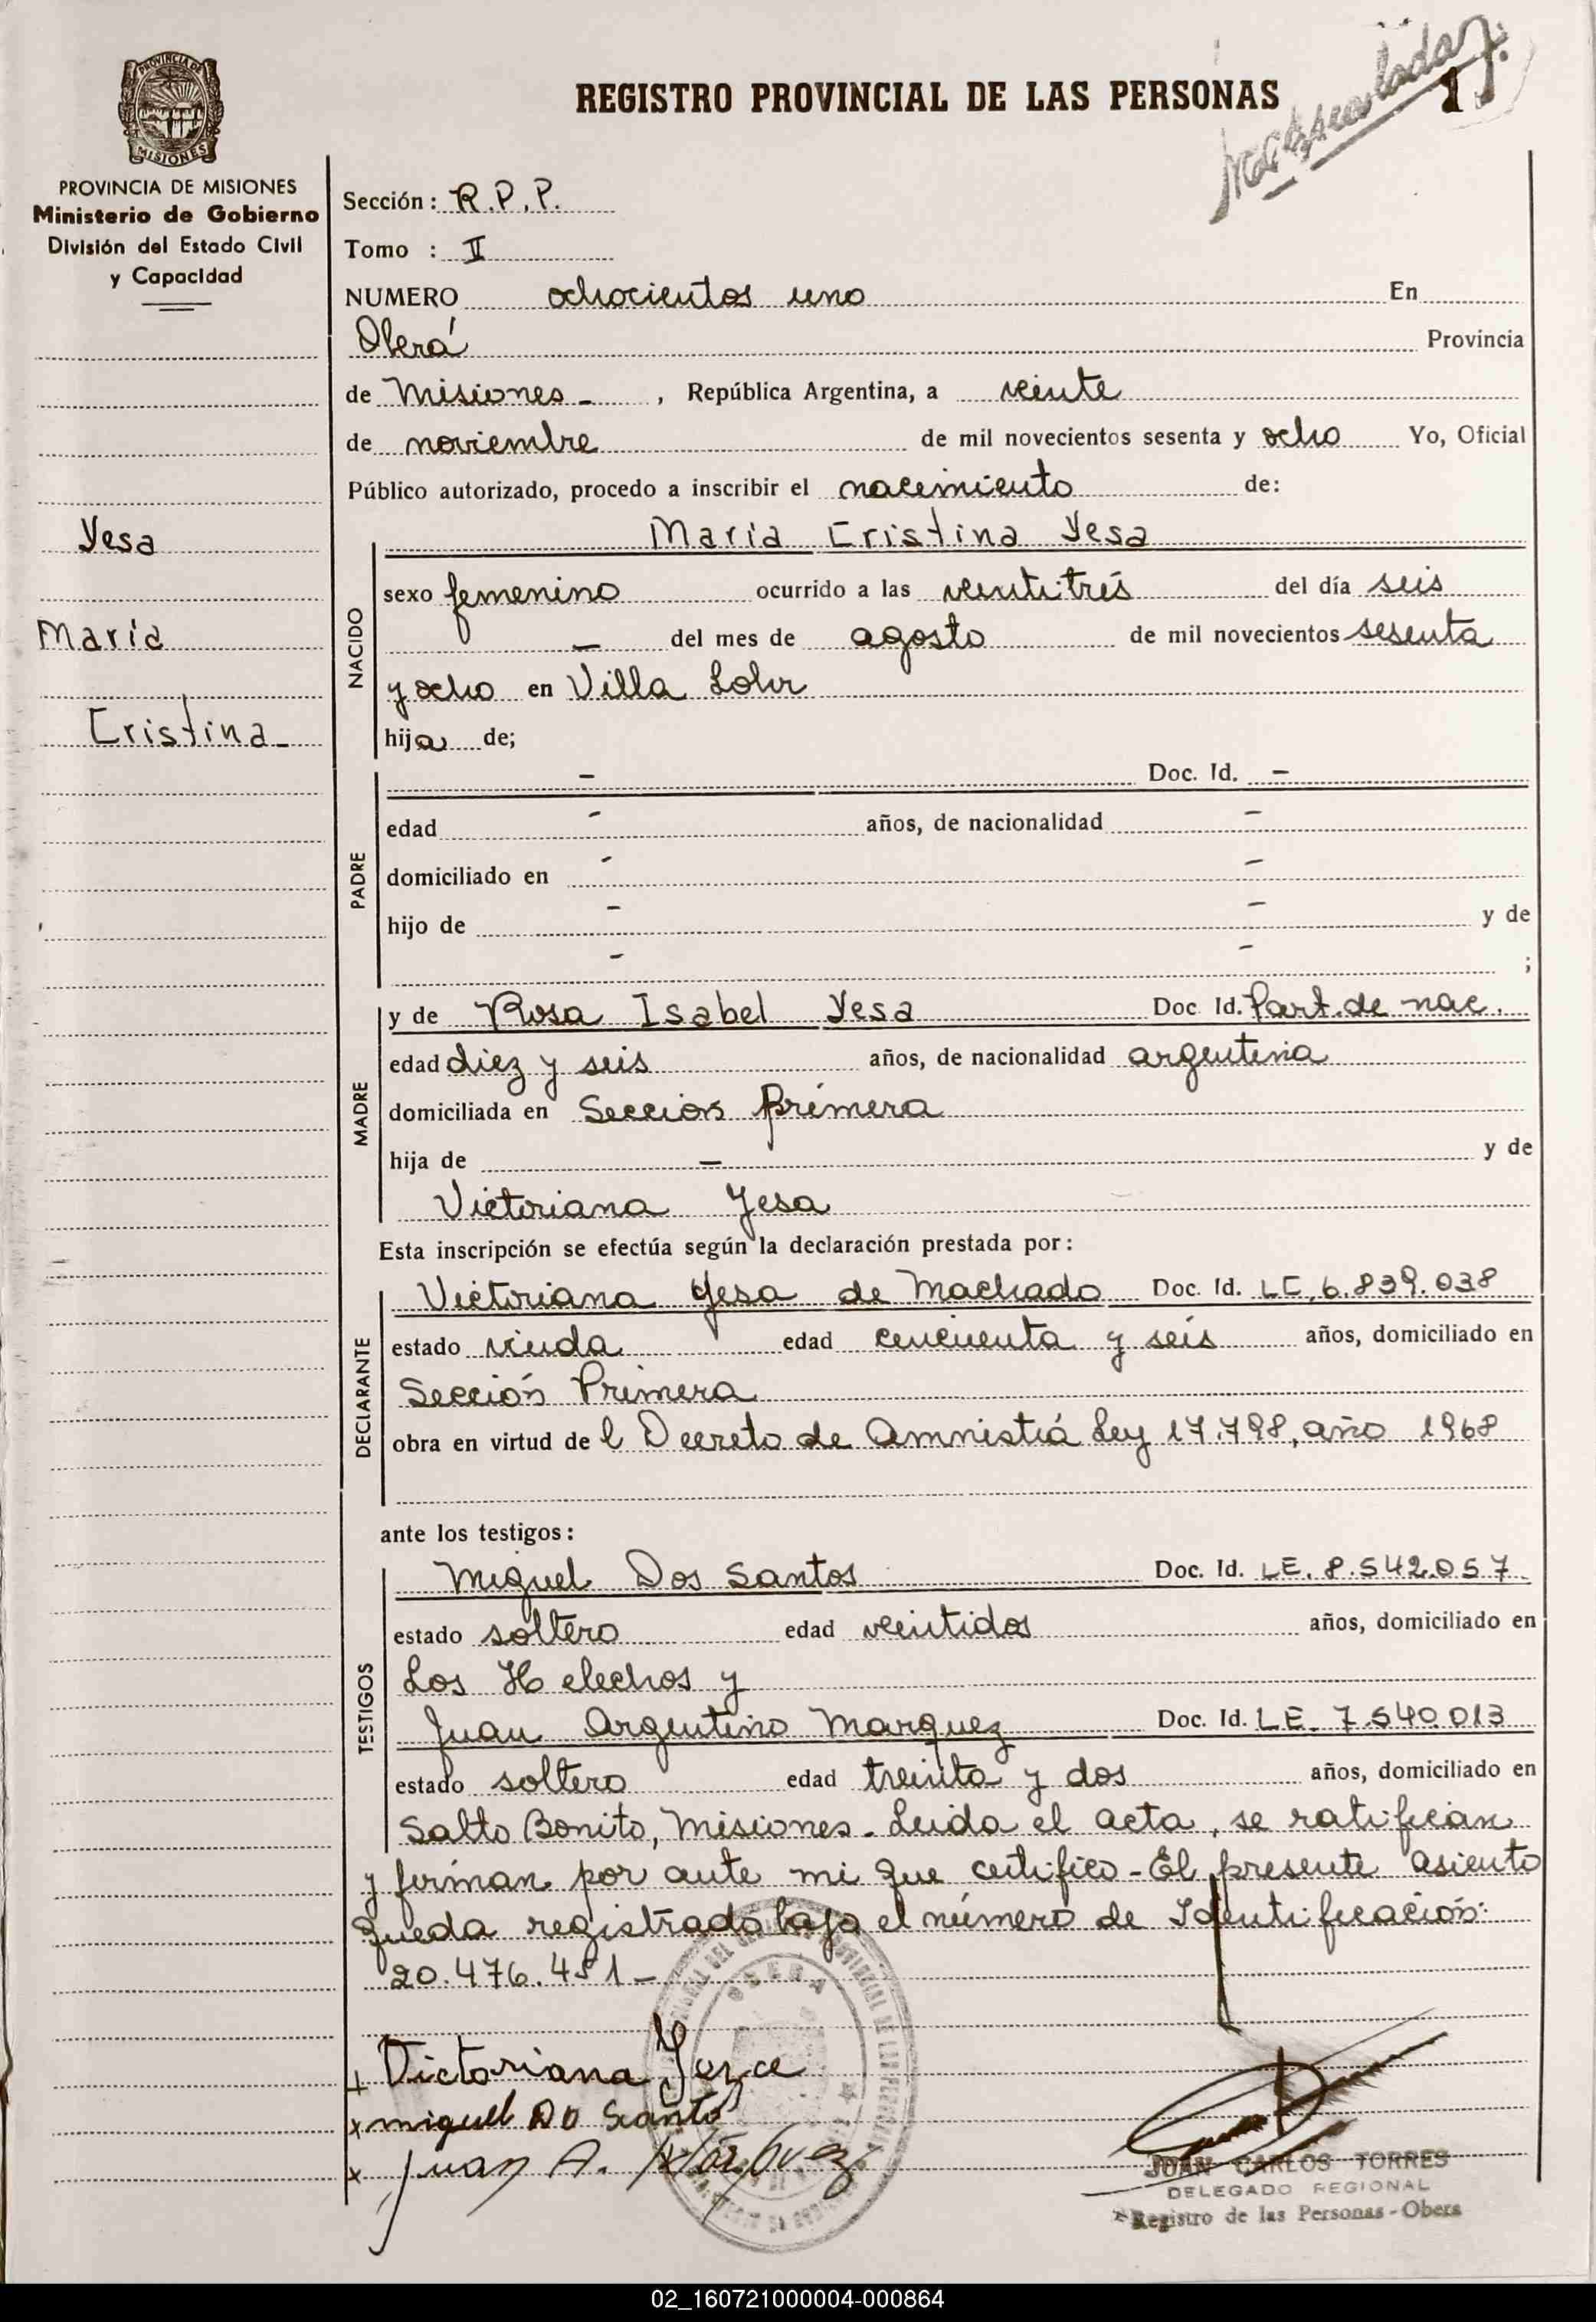 PROVINCIA DE
MISIONES
REGISTRO PROVINCIAL DE LAS PERSONAS
1
PROVINCIA DE MISIONES
Ministerio de Gobierno
División del Estado Civil
y Capacidad
Yesa
María
Cristina_
Sección: R.P.P.
Tomo : II
NUMERO ochocientos uno En
Oberá Provincia
de Misiones - , República Argentina, a veinte
de noviembre de mil novecientos sesenta y ocho Yo, Oficial
Público autorizado, procedo a inscribir el nacimiento de:
María Cristina Yesa
NACIDO
sexo femenino ocurrido a las veintitrés del día seis
— del mes de agosto de mil novecientos sesenta
y ocho en Villa Lohr
hija de;
PADRE
- Doc. Id. -
edad - años, de nacionalidad -
domiciliado en - -
hijo de - - y de
- - ;
MADRE
y de Rosa Isabel Yesa Doc Id. Part. de nac.
edad diez y seis años, de nacionalidad argentina
domiciliada en Sección Primera
hija de — y de
Victoriana Yesa
Esta inscripción se efectúa según la declaración prestada por:
DECLARANTE
Victoriana Yesa de Machado Doc. Id. LC, 6.839.038
estado viuda edad cincuenta y seis años, domiciliado en
Sección Primera
obra en virtud de l Decreto de Amnistía Ley 17.798, año 1968
ante los testigos:
TESTIGOS
Miguel Dos Santos Doc. Id. LE. 8.542.057
estado soltero edad veintidos años, domiciliado en
Los Helechos y
Juan Argentino Marquez Doc. Id. LE. 7.540.013
estado soltero edad treinta y dos años, domiciliado en
Salto Bonito, Misiones. Leida el acta, se ratifican
y firman por ante mi que certifico - El presente asiento
queda registrado bajo el número de Identificación:
20.476.451 -
OBERA
+ Victoriana Yesa
x miguel Do Santo
x Juan A. Márquez
JUAN CARLOS TORRES
DELEGADO REGIONAL
Registro de las Personas - Obera
02_160721000004-000864